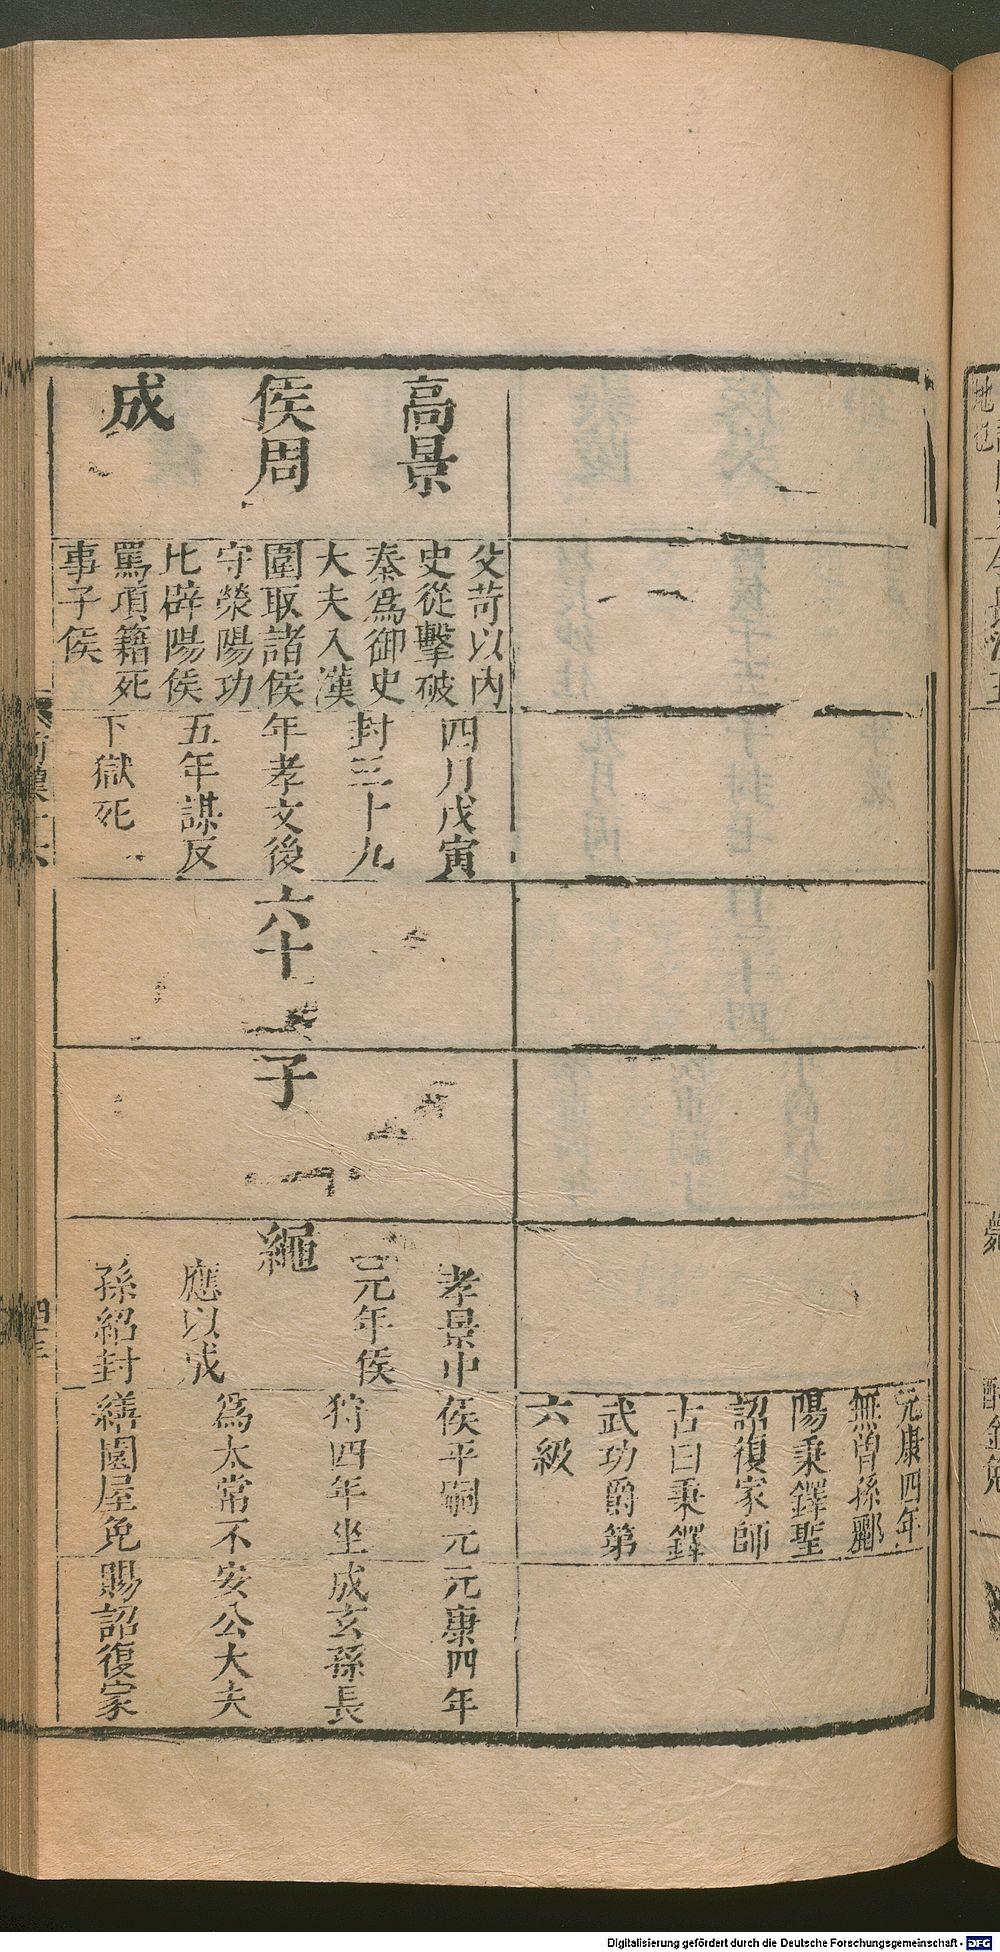 元康四年
無曾孫酈
陽秉鐸聖
詔復家師
古曰秉鐸
武功爵第
六級
高景
侯周
成
父苛以內
史從擊破
秦為御史
大夫入漢
圍取諸侯
守滎陽功
比辟陽侯
罵項籍死
事子侯
四月戊寅
封三十九
年孝文後
五年謀反
下獄死
六十
子
繩
孝景中
元年侯
應以成
孫紹封
侯平嗣元
狩四年坐
為太常不
繕園屋免
元康四年
成玄孫長
安公大夫
賜詔復家
Digitalisierung gefördert durch die Deutsche Forschungsgemeinschaft - DFG